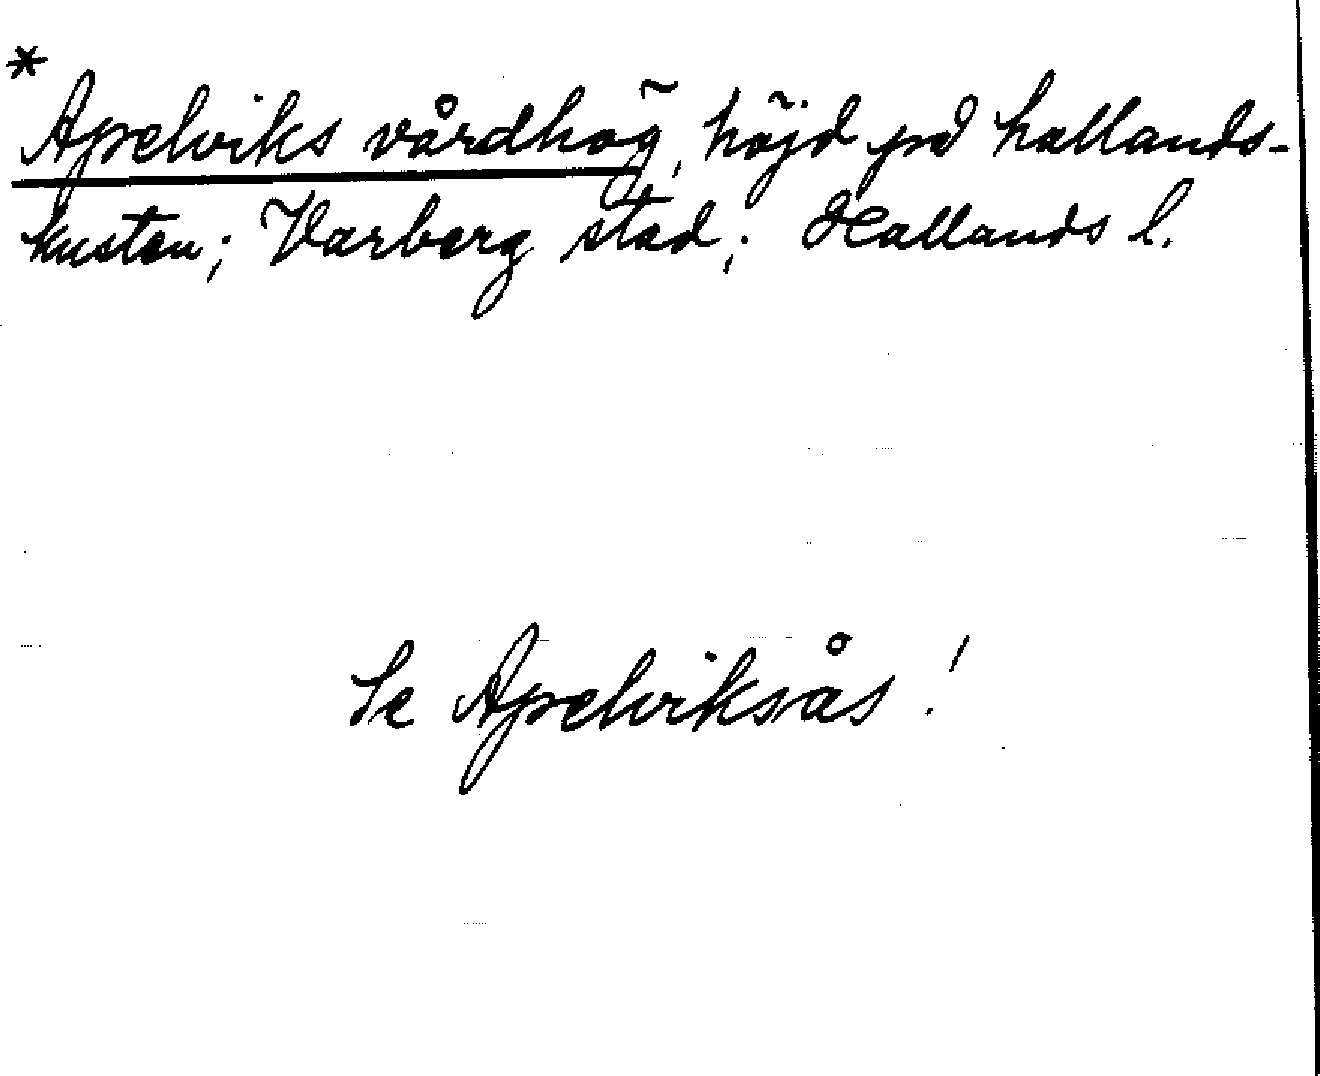 *
Apelviks vårdhög, höjd på hallands-
kusten; Varberg stad; Hallands l.
Se Apelviksås!